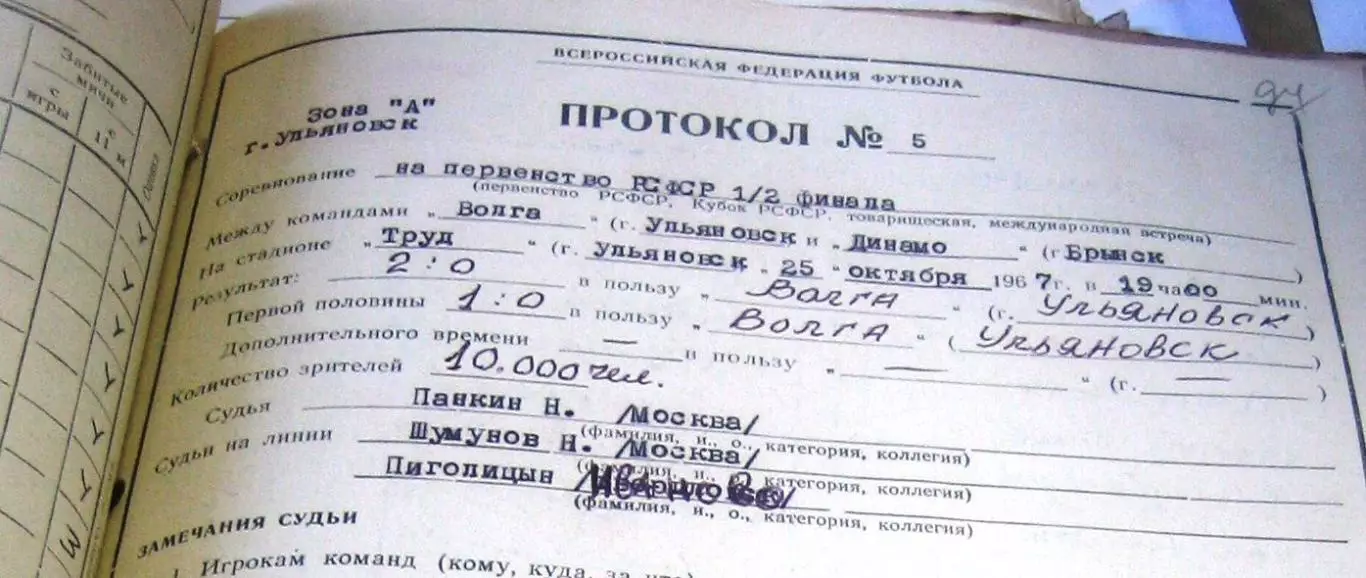 ВСЕРОССИЙСКАЯ ФЕДЕРАЦИЯ ФУТБОЛА
Зона "А"
г. Ульяновск
ПРОТОКОЛ № 5
Соревнование на первенство РСФСР 1/2 финала
(первенство РСФСР, Кубок РСФСР, товарищеская, международная встреча)
Между командами „ Волга “ (г. Ульяновск и „ Динамо “ (г Брянск )
На стадионе „ Труд “ (г. Ульяновск „ 25 “ октября 1967 г. в 19 час 00 мин.
Результат: 2:0 в пользу „ Волга “ (г. Ульяновск )
Первой половины 1:0 в пользу „ Волга “ ( Ульяновск )
Дополнительного времени — в пользу „ — “ (г. — )
Количество зрителей 10.000 чел.
Судья Панкин Н. /Москва/
(фамилия, и., о., категория, коллегия)
Судьи на линии Шумунов Н. /Москва/
(фамилия, и., о., категория, коллегия)
Пиголицын
(фамилия, и., о., категория, коллегия)
ЗАМЕЧАНИЯ СУДЬИ
1. Игрокам команд (кому, куда, за что)
Забитые мячи
с игры
с 11 м